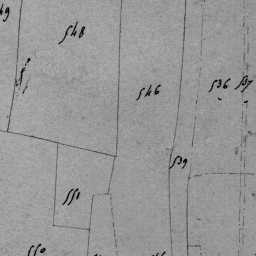 49
548
546
536
537
539
551
550